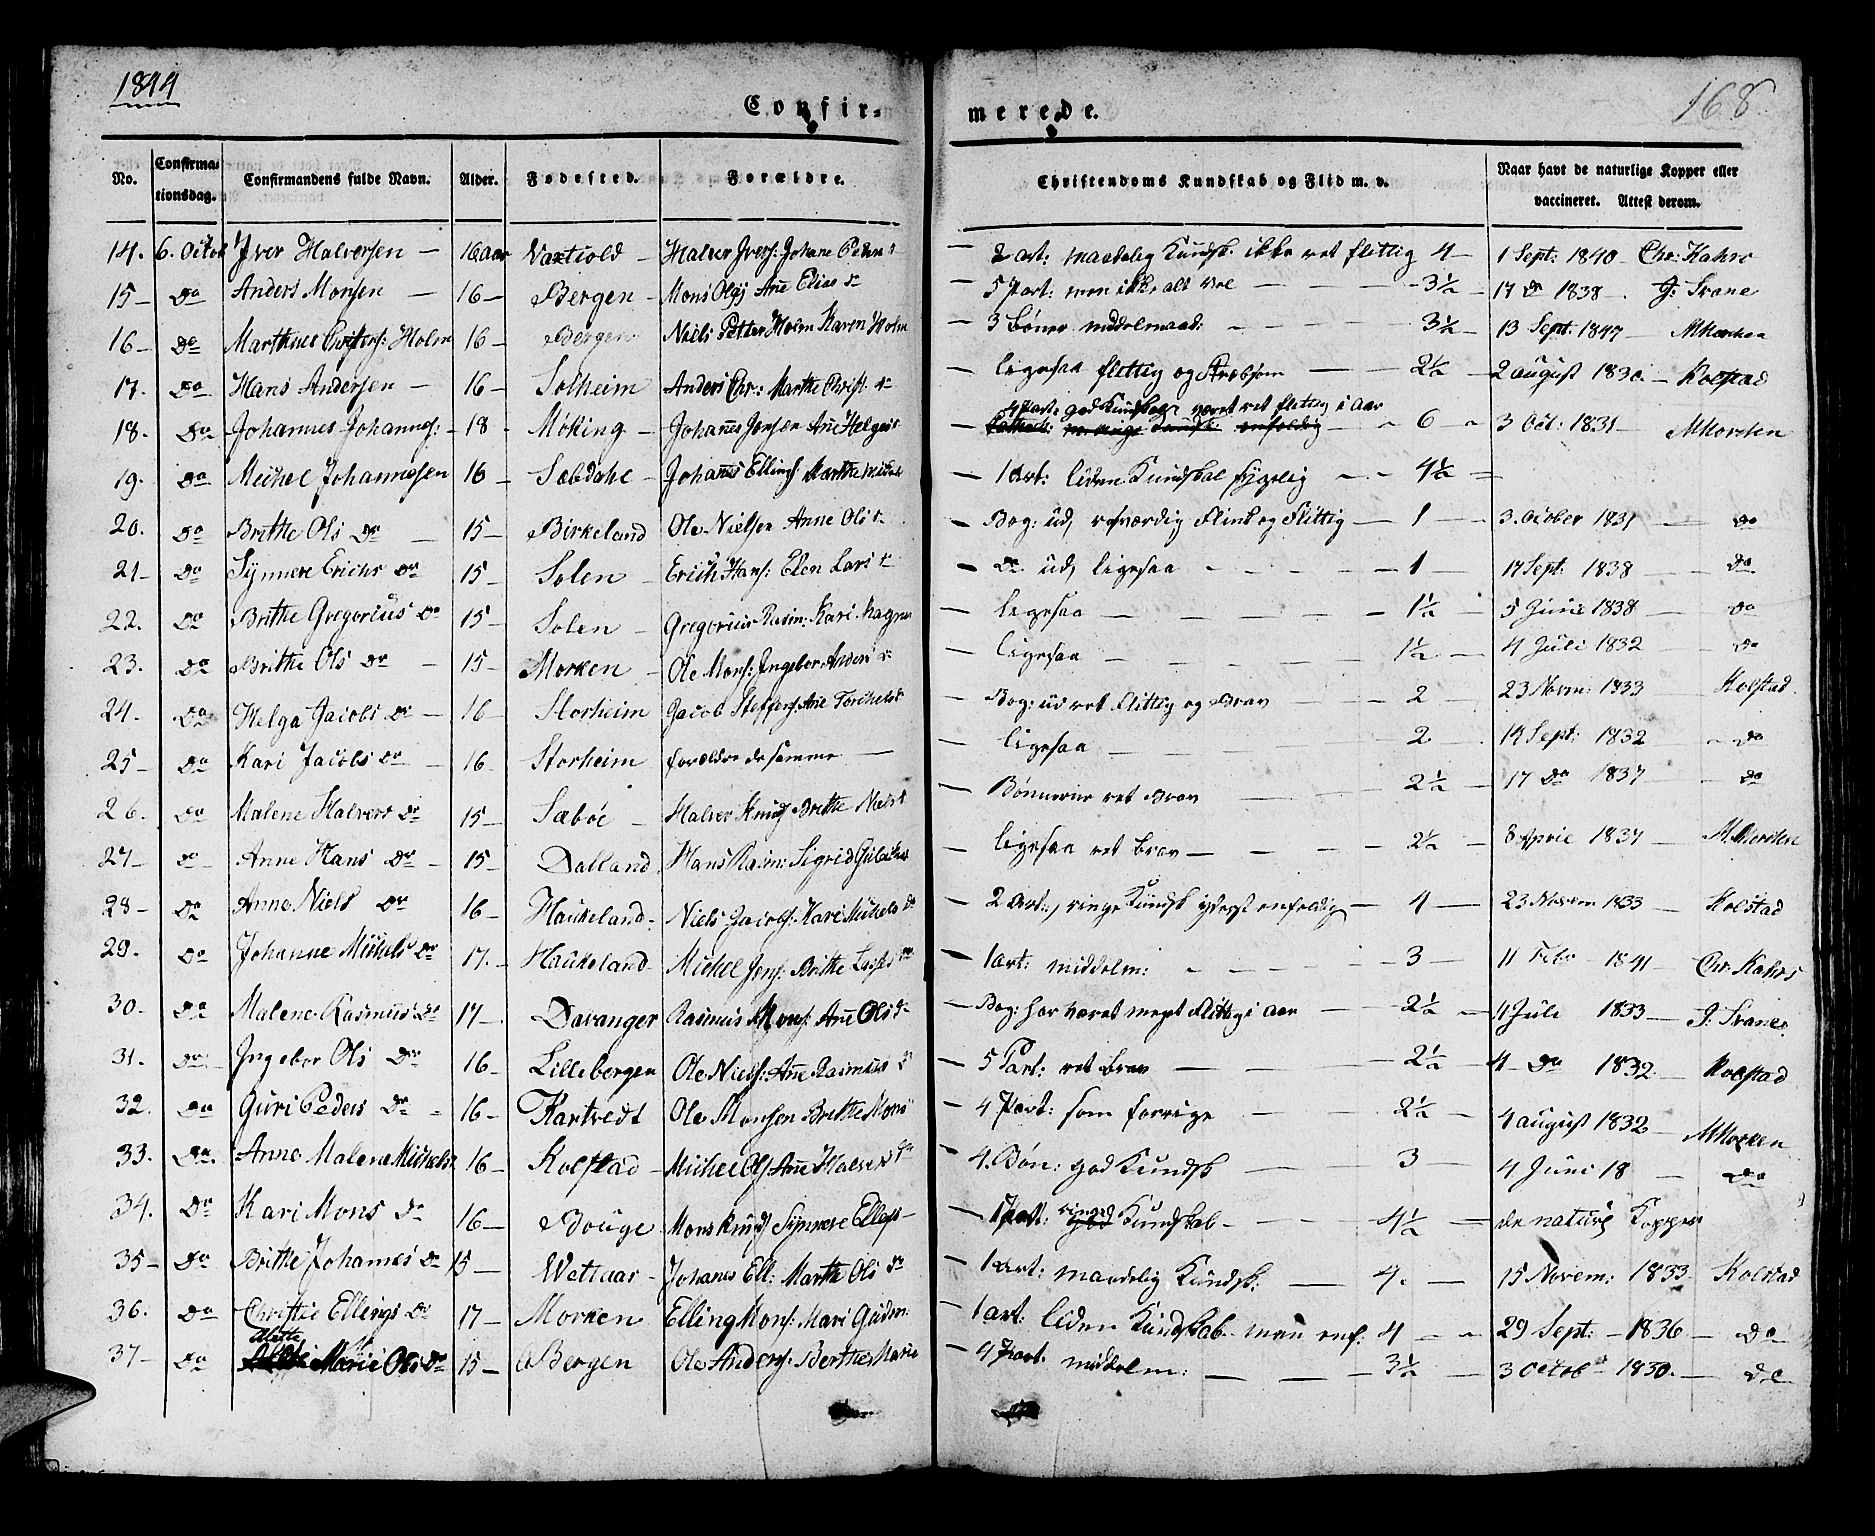 1844
168
Confir= merede.
No. Confirmationsdag. Confirmandens fulde Navn. Alder. Fødested. Forældre. Christendoms Kundskab og Flid m. v. Naar havt de naturlige Kopper eller vaccineret. Attest derom.
14. 6. Octob Iver Halversen — 16 aar — Halver Ivers: Johane — 2 art: maadelig Kundsk: ikke ret flittig 4 — 1 Sept: 1840 — Chr: Kahrs
15 — Do Anders Monsen — 16 — Bergen — Mons Ane Elias Dr — 5 Part: men ikke alt vel — 3½ — 17 Do 1838 — J: Svane
16 — Do Holm 16 — Bergen Niels Petter Holm Karen Holm — 3 Bøner middelmaad: — 3½ — 13 Sept: 1847 —
17. Do Hans Andersen — 16 — Solheim Anders Chr: Marthe Chris: dr — ligesaa flittig og — 2½ — 2 august 1830. — Kolstad
18. Do Johannes Johannes: — 18 — Møking — Johanes Jensen Ane Helges — 4 Part: god Kundskab været ret flittig i aar — 6 — 3 Oct: 1831 — MMorken
19. Do Michel Johannesen 16 — Sæbdahl — Johanes Ellings: Marthe — 1 Art: liden Kundskab sygelig — 4½ =
20. Do Brithe Ols Dr — 15 — Birkeland Ole Nielsen Anne Ols dr — Bog: ud, Flink og Flittig — 1 — 3. October 1831 — do
21 — Do Synneve Erichs Dr 15 — Solen — Erich Hans: Elen Lars dr — Do ud, ligesaa — 1 — 17 Sept: 1838 — Do
22. Do Brithe Gregorius Dr 15 — Solen — Gregorius Rasm: Kari Magnes — ligesaa — 1½ — 5 Juni 1838 — do
23. Do Brithe Ols Dr — 15 — Morken — Ole Mons: Ingebor Anders dr — ligesaa — 1½ — 4 Juli 1832 — do
24. Do Helga Jacobs Dr — 16 — Storheim Jacob Steffens: Ane — Bog: ud ret flittig og Brav — 2 — 23 Novm: 1833 — Kolstad
25 — Do Kari Jacobs Dr — 16 Storheim forældre de samme — ligesaa — 2 — 14 Sept: 1832 — do
26. Do Malene Halvers Dr 15 — Sæbøe — Halver Knuds Brithe Niels — Bønnerne ret Brav — 2½ — 17 Do 1837 — do
27 — Do Anne Hans Dr — 15 Dalland Hans Rasm: Sigrid — ligesaa ret brav — 2½ — 8 April 1837 —
28 — Do Anne Niels Dr 16 — Haukeland — Niels Jacobs: Kari Michels dr — 2 Art:, ringe Kundsk yderst enfoldig — 4 — 23 Novem 1833 — Kolstad
29. Do Johanne Michels Dr 17. — Haukeland — Michel Jens: Brithe — 1 art: middelm: — 3 — 11 Febr 1841 — Chr: Kahrs
30. Do Malene Rasmus Dr 17 — Davanger Rasmus Mons: Ane Ols dr — Bog: har været meget flittig i aar — 2½ — 11 Juli 1833 — J: Svane
31. Do Ingebor Ols Dr 16 — Lillebergen Ole Niels: Ane Rasmus dr — 5 Part: ret brav — 2½ — 4 — Do 1832 — Kolstad
32. Do Guri Peders Dr — 16 — Hartvedt Ole Monsen Brithe Mons — 4 Part: som forrige — 2½ — 4 august 1832 — MMorken
33. Do Anne Malena Michels 16 — Kolstad — Michel Ols: Ane Halvers dr — 4. Bøn: god Kundsk — 3 — 4 Juni 18 — Do
34. Do Kari Mons Dr 16 — Bouge — Mons Knuds Synneve — 1 Part: ringe Kundskab — 4½ = de naturl Kopper
35 — Do Brithe Johannes Dr 15 — Wettaas — Johanes Ell: Marthe Ols dr — 1 Art: maadelig Kundsk: — 4. — 15 Novem: 1833 Kolstad
36. Do Christie Ellings Dr 17 — Morken Elling Mons: Mari Gudm: — 1 art: liden Kundskab men enf: 4 — 29 Sept: — 1836 — Do
37 — Do Alette Marie Ols Dr 15 — Bergen Ole Anders: Berthe Marie — 4 Part: middelm: — 3½ — 3 Octob 1830. — Do